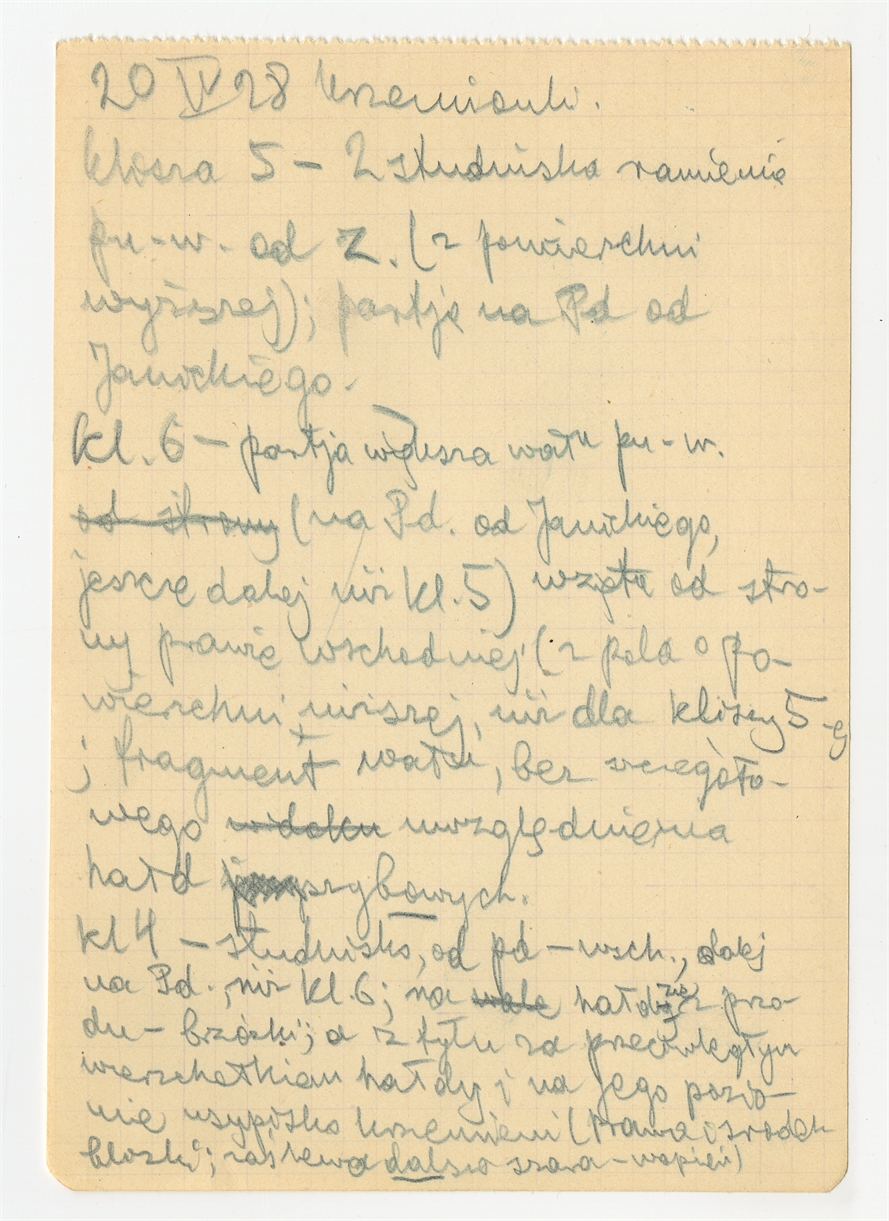 20 IV 28 Krzemionki.
klisza 5 – 2 studniska ramienia
pn-w. od Z. (z powierchni
wyższej); partja na Pd od
Janickiego.
kl. 6 – partja większa wału pn-w.
od strony (na Pd. od Janickiego,
jeszcze dalej niż kl. 5) wzięta od stro-
ny prawie wschodniej (z pola o po-
wierchni niższej, niż dla kliszy 5-ej
j fragment wału, bez szczegóło-
wego widoku uwzględnienia
hałd przyszybowych.
kl 4 – studnisko, od pd-wsch., dalej
na Pd., niż kl. 6; na wale hałdzie z przo-
du – brzózki; a z tyłu za przeciwległym
wierzchołkiem hałdy i na jego pozio-
mie usypisko krzemieni (prawa i środek
bloski; zaś lewa dalsza szara – wapień)